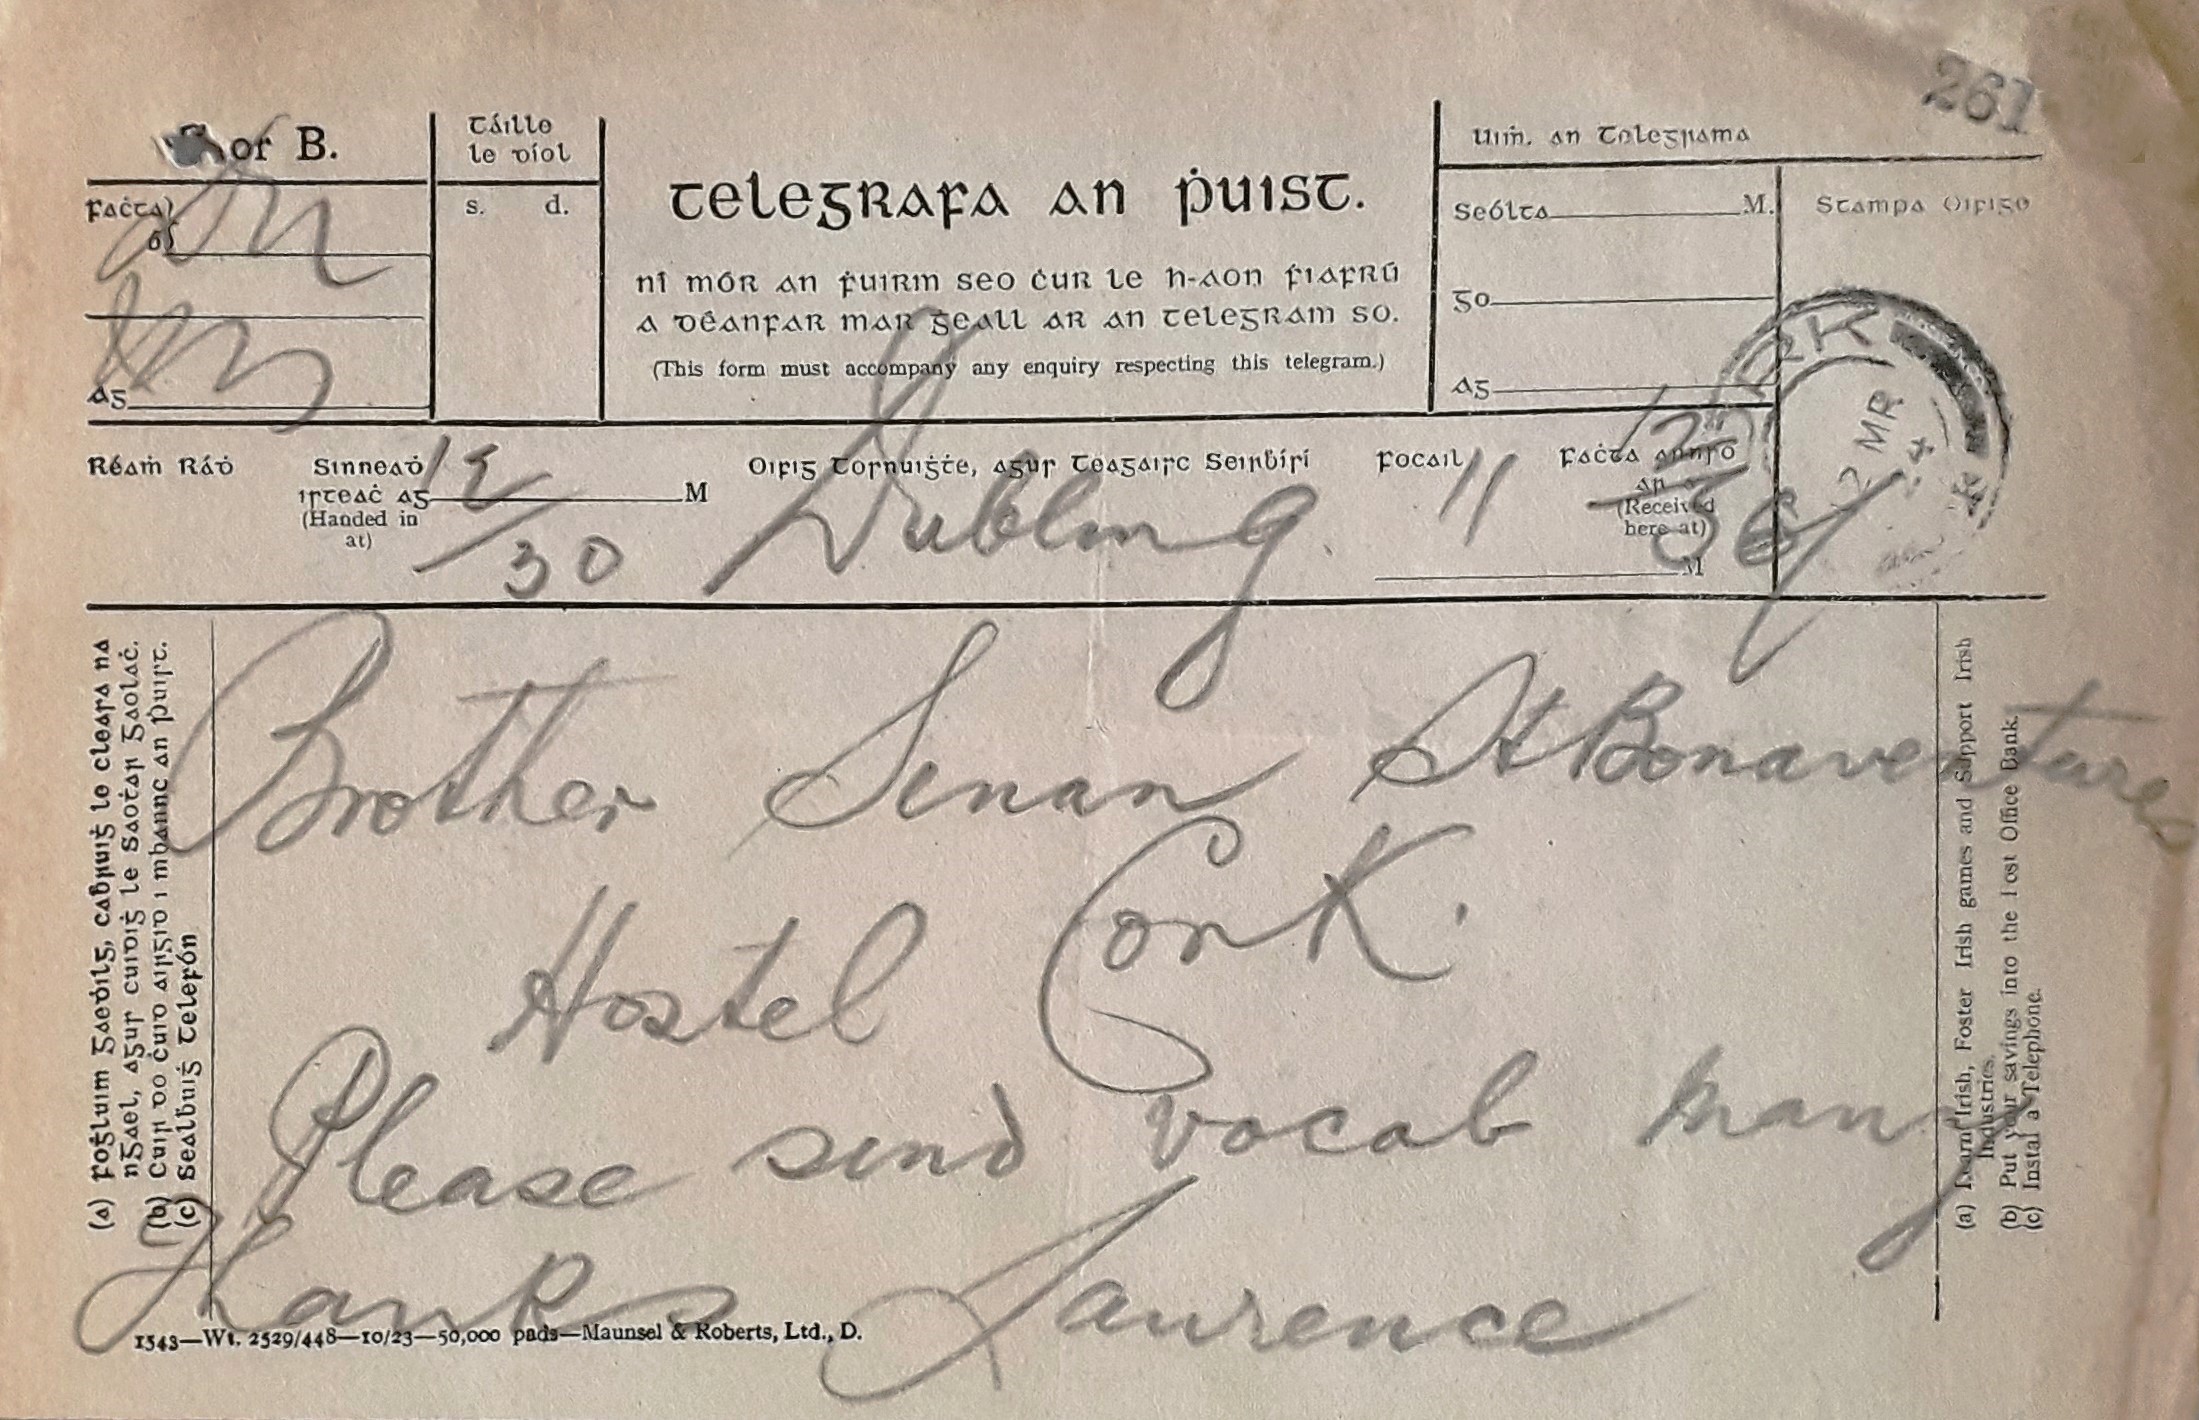 261
or B.
Táille
le díol
Uiṁ. an Telegrama
Faċtaí
ó
s. d.
TELEGRAFA AN ṖUIST.
Seólta M.
Stampa Oifige
Ní mór an ḟuirm seo ċur le h-aon ḟiafrú
a déanfar mar ġeall ar an telegram so.
(This form must accompany any enquiry respecting this telegram.)
Go
Ag
Ag
RK
12 MR
24
Réaṁ Ráḋ
Sinneaḋ
isteaċ ag M
(Handed in
at)
12/30
Oifig Tosnuiġṫe, agus Teagaisc Seirḃísí
Dublin G
Focail 11
Faċta annso
(Received
here at)
M
12
56
Brother Senan St Bonaventures
Hostel Cork.
Please send vocab many
Thanks Laurence
(a) Foġluim Gaeḋilg, cabruiġ le cleasa na
nGael, agus cuidiġ le saoṫar Gaolaċ.
(b) Cuir do ċuid airgid i mbannc an Puist.
(c) Sealbuiġ Telefón
(a) Learn Irish, Foster Irish games and Support Irish
Industries.
(b) Put your savings into the Post Office Bank.
(c) Instal a Telephone.
1543—Wt. 2529/448—10/23—50,000 pads—Maunsel & Roberts, Ltd., D.